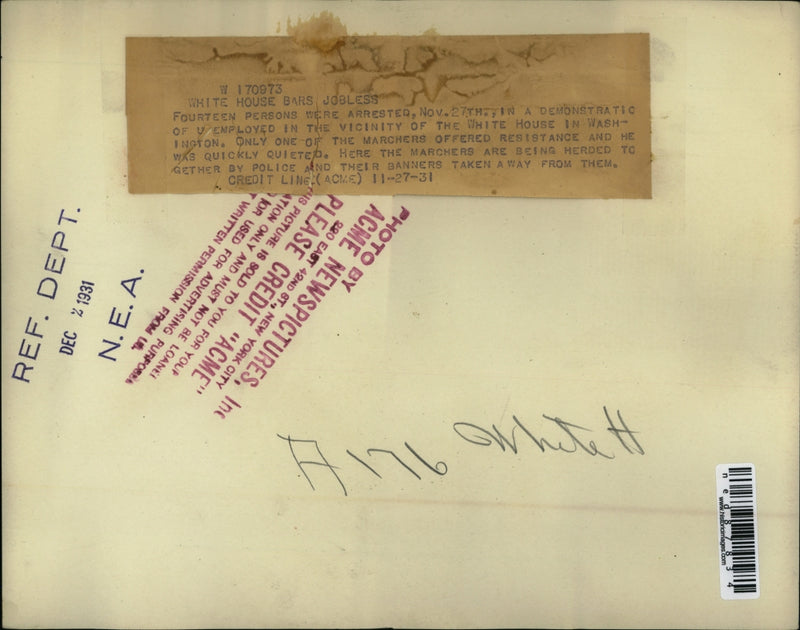 W 170973
WHITE HOUSE BARS JOBLESS
FOURTEEN PERSONS WERE ARRESTED, NOV. 27TH., IN A DEMONSTRATIO
OF U EMPLOYED IN THE VICINITY OF THE WHITE HOUSE IN WASH-
INGTON. ONLY ONE OF THE MARCHERS OFFERED RESISTANCE AND HE
WAS QUICKLY QUIETED. HERE THE MARCHERS ARE BEING HERDED TO
GETHER BY POLICE AND THEIR BANNERS TAKEN AWAY FROM THEM.
CREDIT LINE (ACME) 11-27-31
REF. DEPT.
DEC 2 1931
N.E.A.
PHOTO BY
ACME NEWSPICTURES, Inc
220 EAST 42ND ST., NEW YORK CITY
PLEASE CREDIT "ACME"
HIS PICTURE IS SOLD TO YOU FOR YOUR
ATION ONLY AND MUST NOT BE LOANED
OR USED FOR ADVERTISING PURPOSES
T WRITTEN PERMISSION FROM US.
A176 White H
ned87834
www.historicimages.com